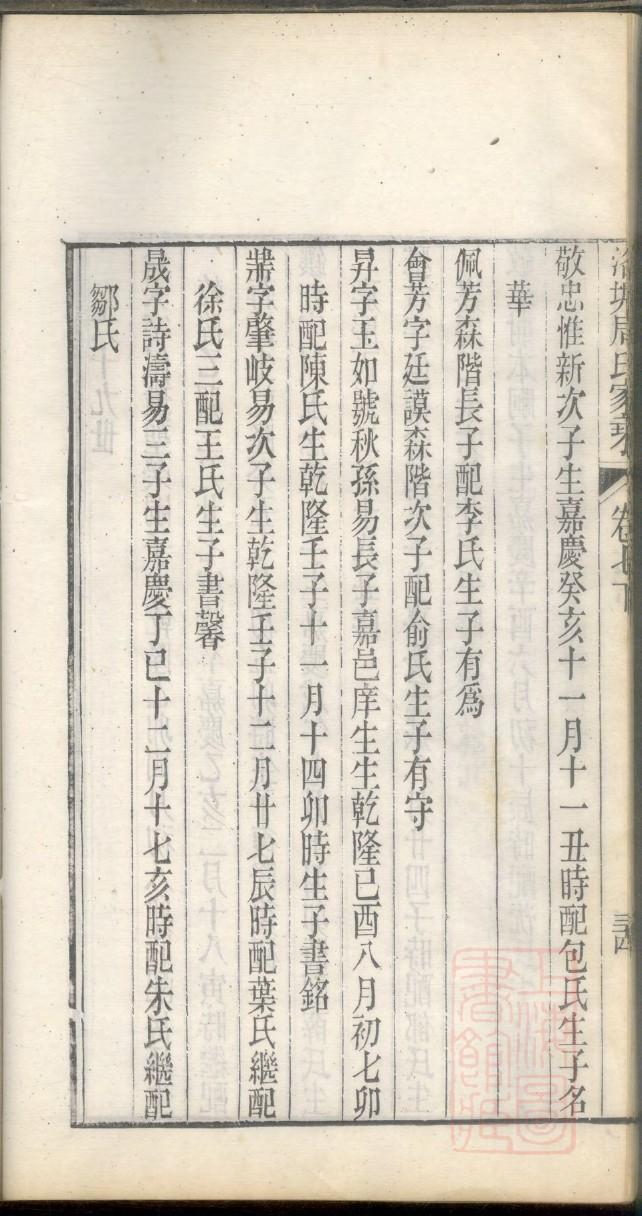 周氏家乘 卷七下
敬忠惟新次子生嘉慶癸亥十一月十一丑時配包氏生子名
華
佩芳森階長子配李氏生子有爲
會芳字廷謨森階次子配俞氏生子有守
昇字玉如號秋孫易長子嘉邑庠生生乾隆己酉八月初七卯
時配陳氏生乾隆壬子十一月十四卯時生子書銘
字肇岐易次子生乾隆壬子十二月廿七辰時配葉氏繼配
徐氏三配王氏生子書馨
晟字詩濤易三子生嘉慶丁巳十二月十七亥時配朱氏繼配
鄒氏